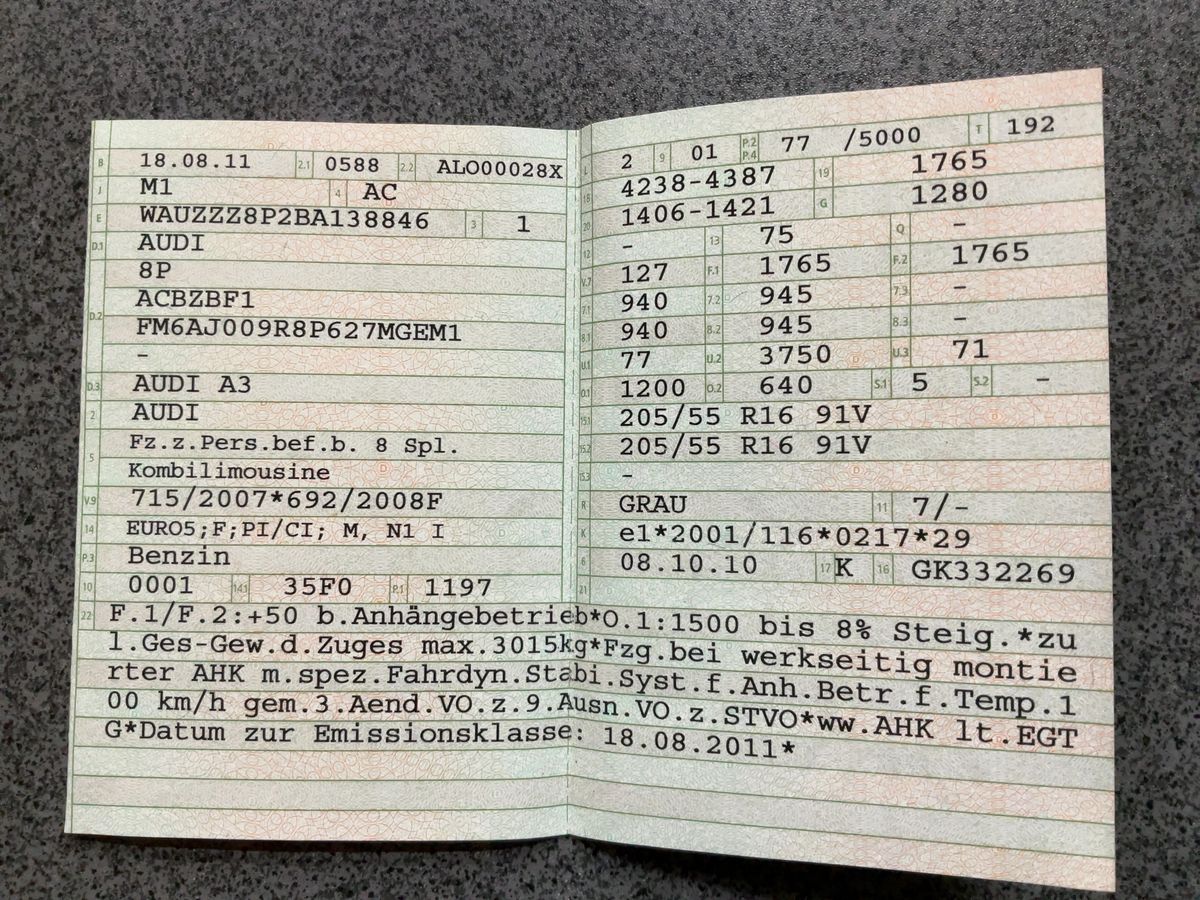 B 18.08.11 2.1 0588 2.2 ALO00028X
J M1 4 AC
E WAUZZZ8P2BA138846 3 1
D.1 AUDI
8P
D.2 ACBZBF1
FM6AJ009R8P627MGEM1
-
D.3 AUDI A3
2 AUDI
5 Fz.z.Pers.bef.b. 8 Spl.
Kombilimousine
V.9 715/2007*692/2008F
14 EURO5;F;PI/CI; M, N1 I
P.3 Benzin
10 0001 14.1 35F0 P.1 1197
L 2 9 01 P.2 P.4 77 /5000 T 192
18 4238-4387 19 1765
20 1406-1421 G 1280
12 - 13 75 Q -
V.7 127 F.1 1765 F.2 1765
7.1 940 7.2 945 7.3 -
8.1 940 8.2 945 8.3 -
U.1 77 U.2 3750 U.3 71
O.1 1200 O.2 640 S.1 5 S.2 -
15.1 205/55 R16 91V
15.2 205/55 R16 91V
15.3 -
R GRAU 11 7/-
K e1*2001/116*0217*29
6 08.10.10 17 K 16 GK332269
21
22 F.1/F.2:+50 b.Anhängebetrieb*O.1:1500 bis 8% Steig.*zu
l.Ges-Gew.d.Zuges max.3015kg*Fzg.bei werkseitig montie
rter AHK m.spez.Fahrdyn.Stabi.Syst.f.Anh.Betr.f.Temp.1
00 km/h gem.3.Aend.VO.z.9.Ausn.VO.z.STVO*ww.AHK lt.EGT
G*Datum zur Emissionsklasse: 18.08.2011*